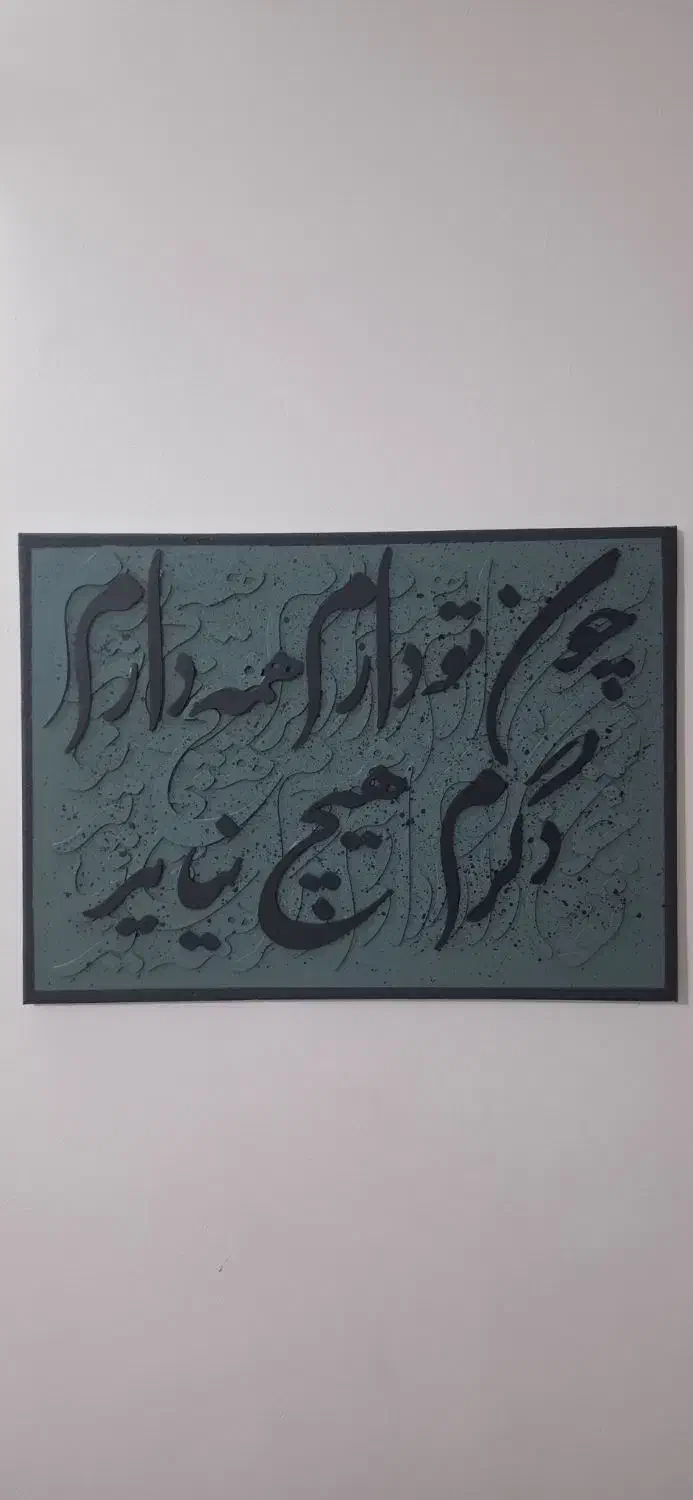 چون تو دارم همه دارم
دگرم هیچ نیاید